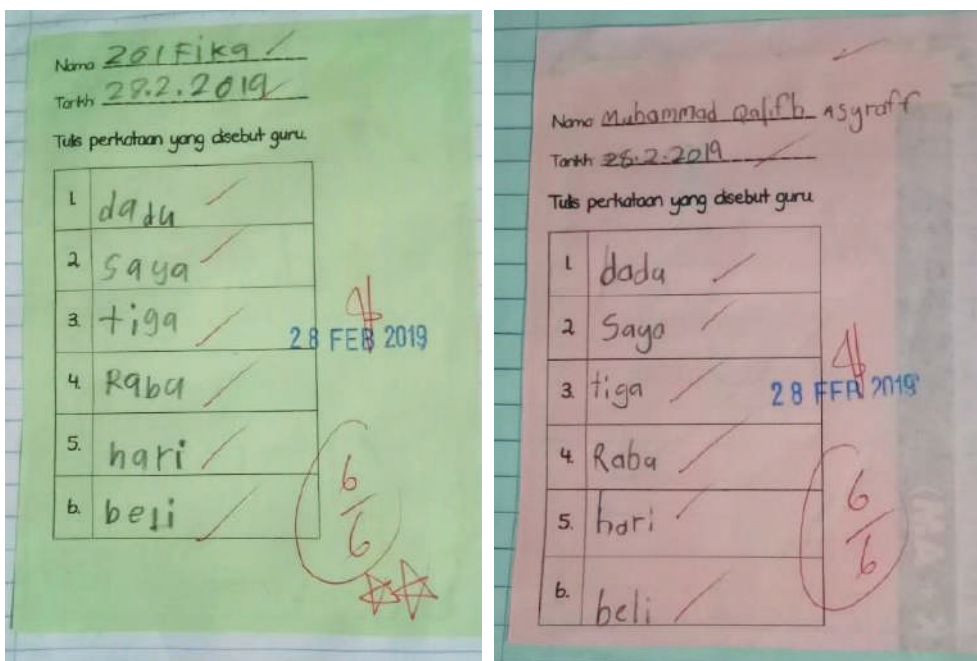 Nama Zolfika
Tarikh 28.2.2019
Tulis perkataan yang disebut guru.
1. dadu
2. saya
3. tiga
28 FEB 2019
4. Raba
5. hari
6. beli
6/6
Nama Muhammad Qalif b Asyraff
Tarikh 28.2.2019
Tulis perkataan yang disebut guru.
1. dadu
2. Saya
3. tiga
28 FEB 2019
4. Raba
5. hari
6. beli
6/6